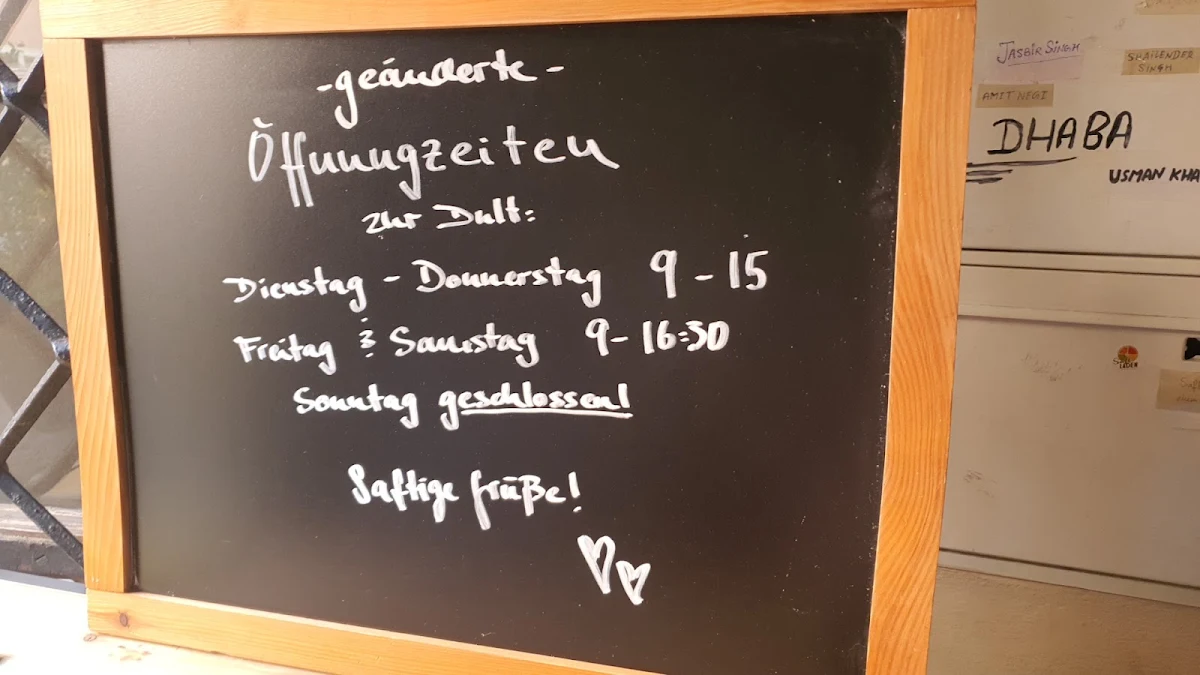 -geänderte-
Öffnungzeiten
zur Dult:
Dienstag - Donnerstag 9 - 15
Freitag & Samstag 9 - 16:30
Sonntag geschlossen!
Saftige Grüße!
JASBIR SINGH
SHAILENDER SINGH
AMIT NEGI
DHABA
USMAN KHA
LADEN